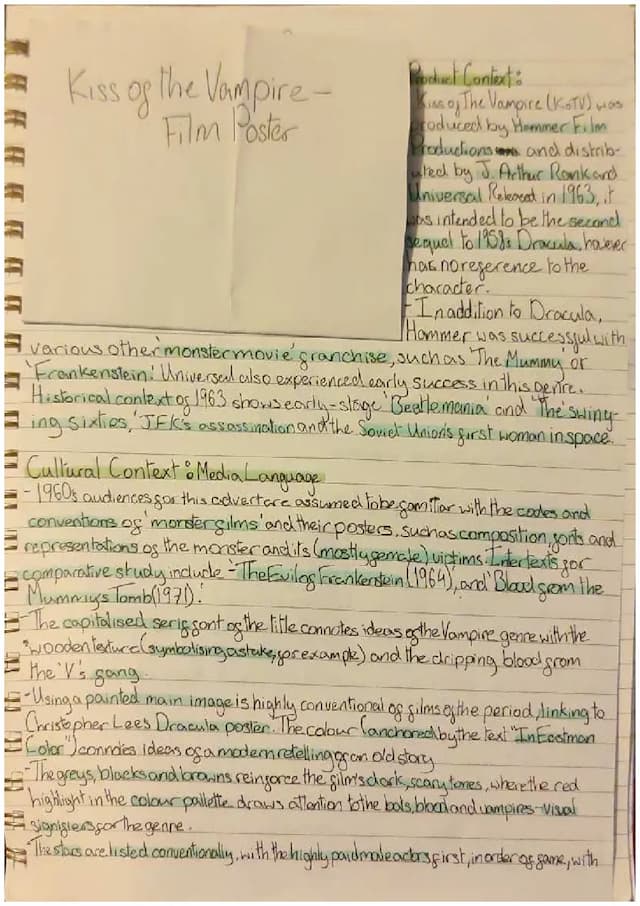 Kiss of the Vampire –
Film Poster
Product Context:
Kiss of The Vampire (KoTV) was
produced by Hammer Film
Productions and distrib-
uted by J. Arthur Rank and
Universal. Released in 1963, it
was intended to be the second
sequel to 1958s Dracula, however
has no reference to the
character.
- In addition to Dracula,
Hammer was successful with
various other 'monster movie' franchise, such as 'The Mummy' or
'Frankenstein'. Universal also experienced early success in this genre.
Historical context of 1963 shows early-stage 'Beetlemania' and 'The swing-
ing sixties,' JFK's assassination and the Soviet Union's first woman in space.
Cultural Context: Media Language
- 1960s audiences for this advert are assumed to be familiar with the codes and
conventions of 'monster films' and their posters, such as composition, fonts and
representations of the monster and its (mostly female) victims. Intertexts for
comparative study include - 'The Evil of Frankenstein (1964)', and 'Blood from the
Mummys Tomb (1971).'
- The capitalised serif font of the title connotes ideas of the Vampire genre with the
wooden texture (symbolising a stake, for example) and the dripping blood from
the 'V's fang.
- Using a painted main image is highly conventional of films of the period, linking to
Christopher Lees Dracula poster. The colour (anchored by the text "In Eastman
Color") connotes ideas of a modern retelling of an old story
- The greys, blacks and browns reinforce the film's dark, scary tones, where the red
highlight in the colour pallette draws attention to the bats, blood and vampires - visual
signifiers for the genre.
- The stars are listed conventionally, with the highly paid male actors first, in order of fame, with